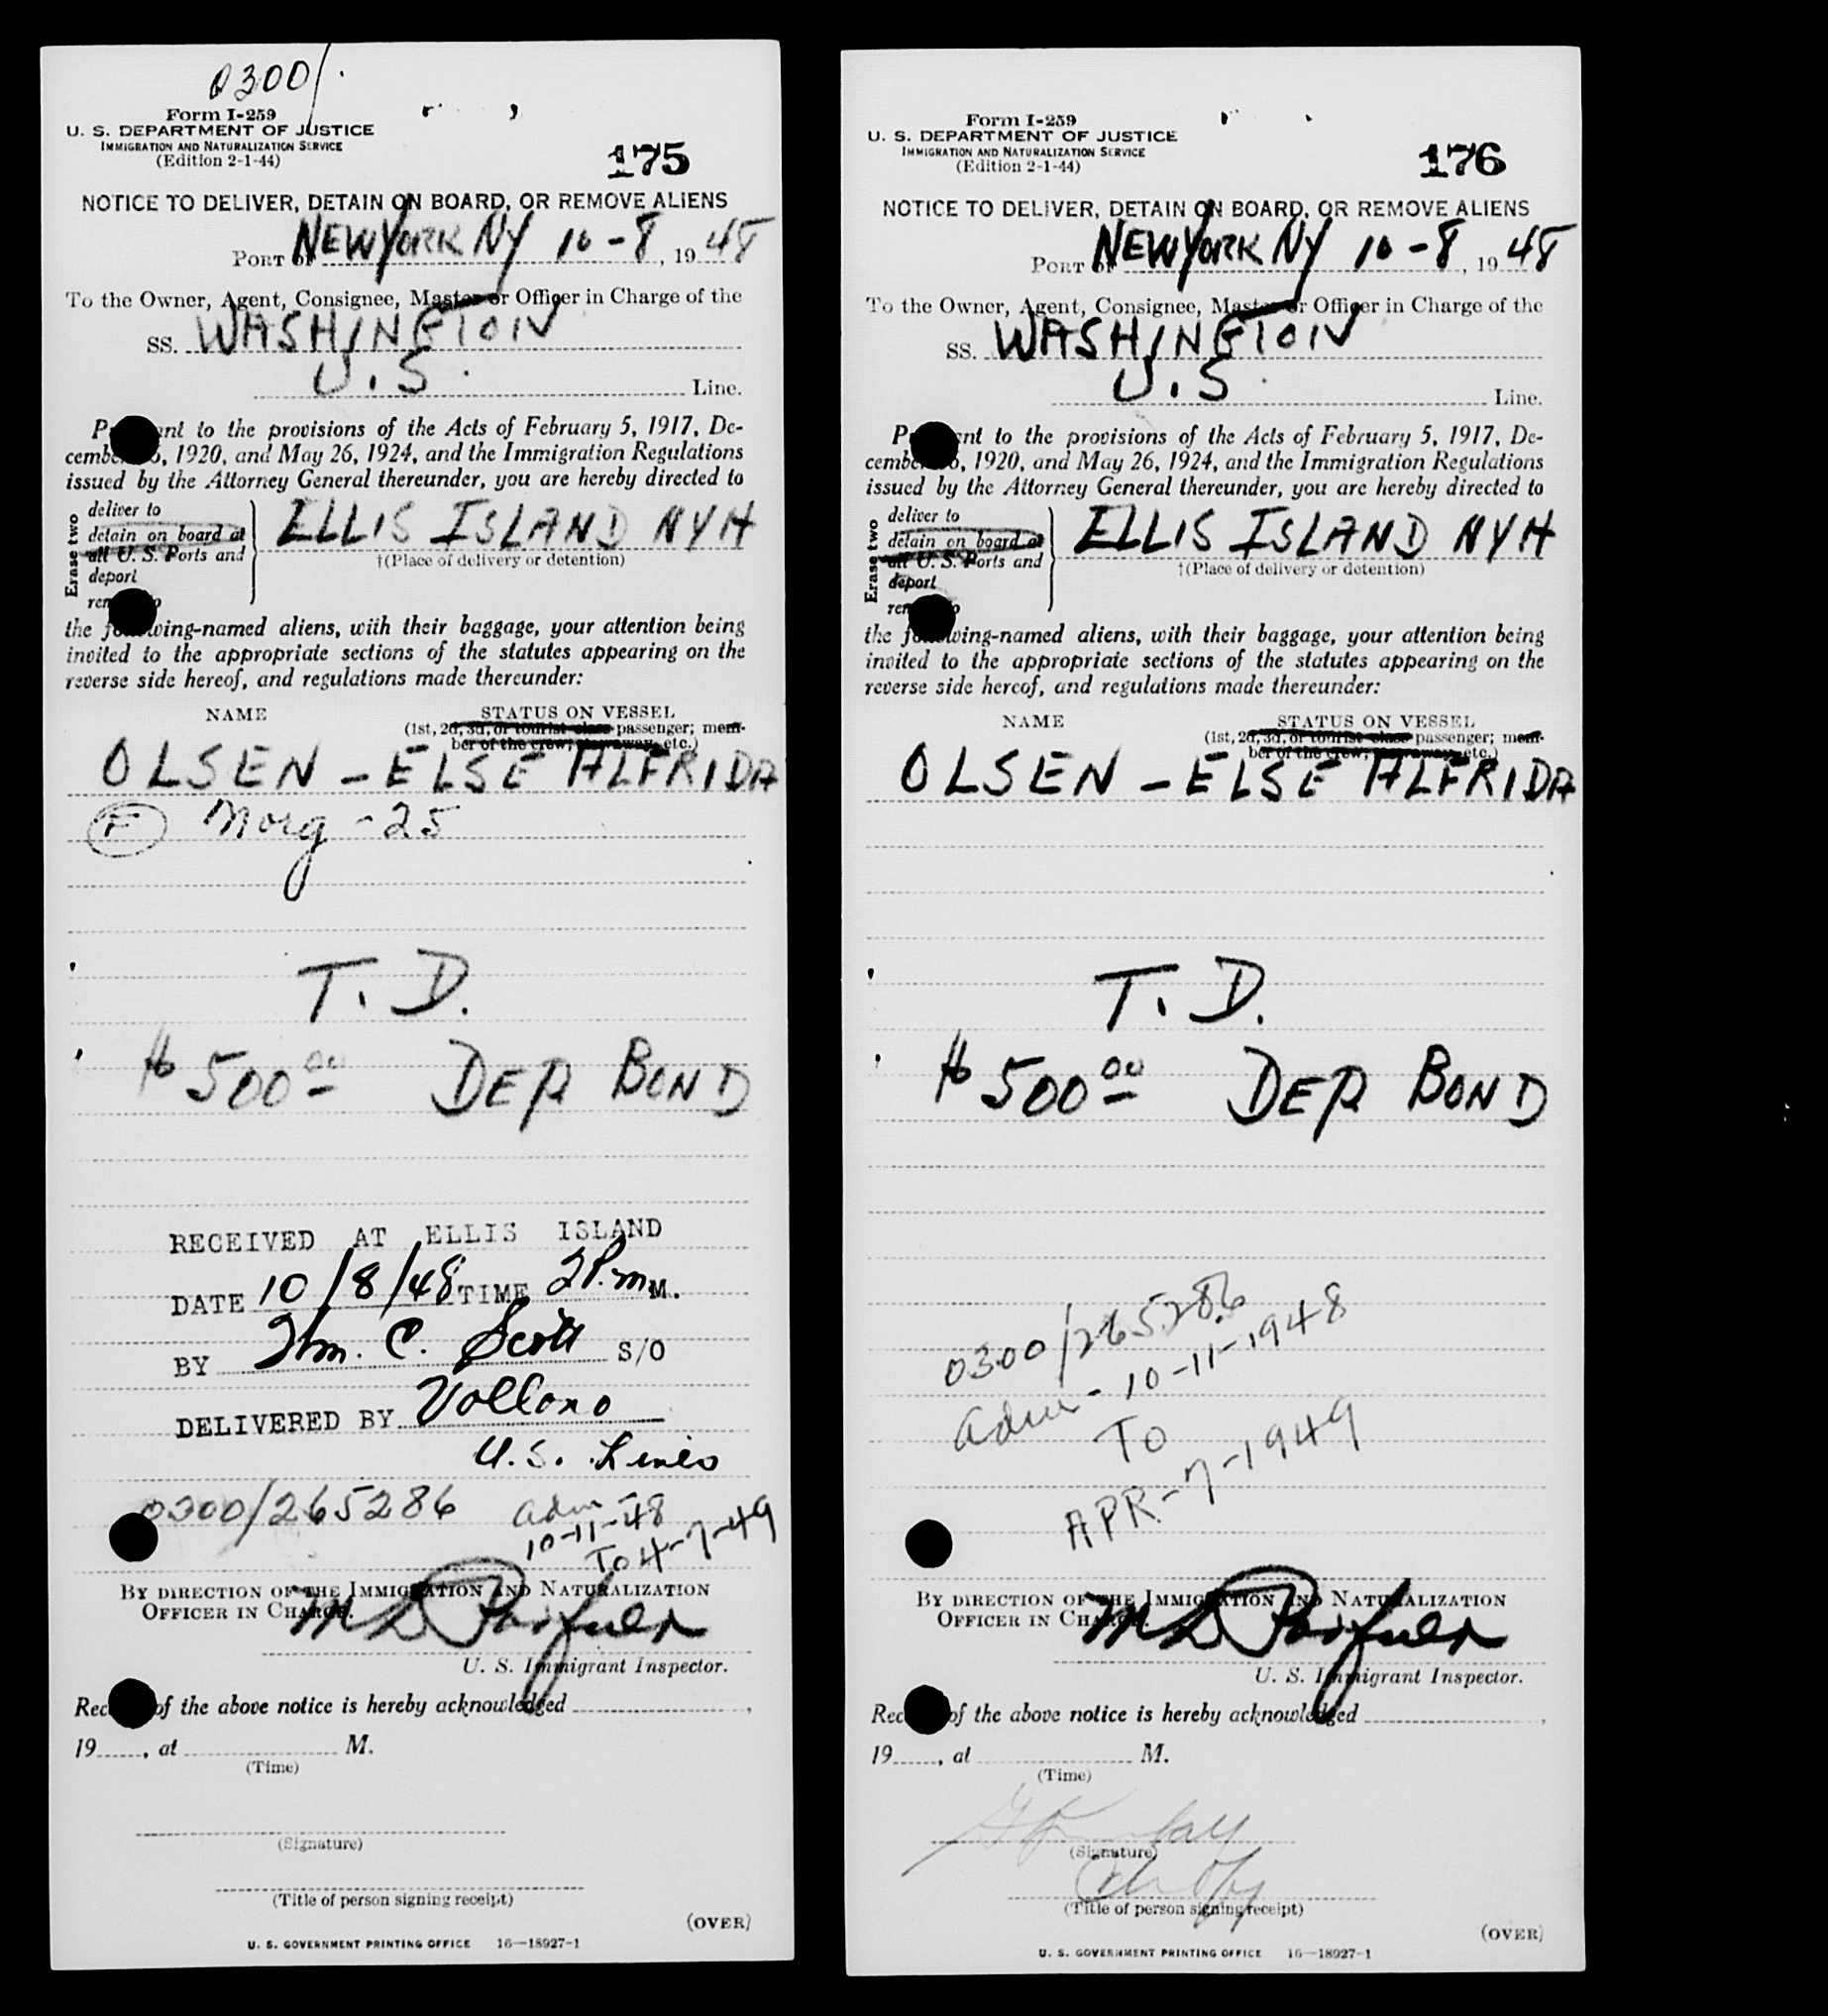 0300/.
Form I-259
U. S. DEPARTMENT OF JUSTICE
IMMIGRATION AND NATURALIZATION SERVICE
(Edition 2-1-44)
175
NOTICE TO DELIVER, DETAIN ON BOARD, OR REMOVE ALIENS
PORT of NEW YORK NY 10-8, 1948
To the Owner, Agent, Consignee, Master or Officer in Charge of the
SS. WASHINGTON
U.S. Line.
P nt to the provisions of the Acts of February 5, 1917, De-
cembe 5, 1920, and May 26, 1924, and the Immigration Regulations
issued by the Attorney General thereunder, you are hereby directed to
Erase two
deliver to
detain on board at
all U. S. Ports and
deport
rem o
ELLIS ISLAND NYH
†(Place of delivery or detention)
the fo wing-named aliens, with their baggage, your attention being
invited to the appropriate sections of the statutes appearing on the
reverse side hereof, and regulations made thereunder:
NAME STATUS ON VESSEL
(1st, 2d, 3d, or tourist class passenger; mem-
ber of the crew; stowaway, etc.)
OLSEN - ELSE ALFRIDA
F Norg - 25
T. D.
$500.00 DEP BOND
RECEIVED AT ELLIS ISLAND
DATE 10/8/48 TIME 2 P.m M.
BY Wm. C. Scott S/O
DELIVERED BY Vollono
U.S. Lines
0300/265286 adm
10-11-48
To 4-7-49
BY DIRECTION OF THE IMMIGRATION AND NATURALIZATION
OFFICER IN CHARGE.
U. S. Immigrant Inspector.
Rec of the above notice is hereby acknowledged ,
19 , at M.
(Time)
(Signature)
(Title of person signing receipt)
(OVER)
U. S. GOVERNMENT PRINTING OFFICE 16—18927-1
Form I-259
U. S. DEPARTMENT OF JUSTICE
IMMIGRATION AND NATURALIZATION SERVICE
(Edition 2-1-44)
176
NOTICE TO DELIVER, DETAIN ON BOARD, OR REMOVE ALIENS
PORT of NEW YORK NY 10-8, 1948
To the Owner, Agent, Consignee, Master or Officer in Charge of the
SS. WASHINGTON
U.S. Line.
P nt to the provisions of the Acts of February 5, 1917, De-
cembe 5, 1920, and May 26, 1924, and the Immigration Regulations
issued by the Attorney General thereunder, you are hereby directed to
Erase two
deliver to
detain on board at
all U. S. Ports and
deport
rem o
ELLIS ISLAND NYH
†(Place of delivery or detention)
the fo wing-named aliens, with their baggage, your attention being
invited to the appropriate sections of the statutes appearing on the
reverse side hereof, and regulations made thereunder:
NAME STATUS ON VESSEL
(1st, 2d, 3d, or tourist class passenger; mem-
ber of the crew; stowaway, etc.)
OLSEN - ELSE ALFRIDA
T. D.
$500.00 DEP BOND
0300/265286
adm - 10-11-1948
To
APR-7-1949
BY DIRECTION OF THE IMMIGRATION AND NATURALIZATION
OFFICER IN CHARGE.
U. S. Immigrant Inspector.
Rec of the above notice is hereby acknowledged ,
19 , at M.
(Time)
(Signature)
(Title of person signing receipt)
(OVER)
U. S. GOVERNMENT PRINTING OFFICE 16—18927-1